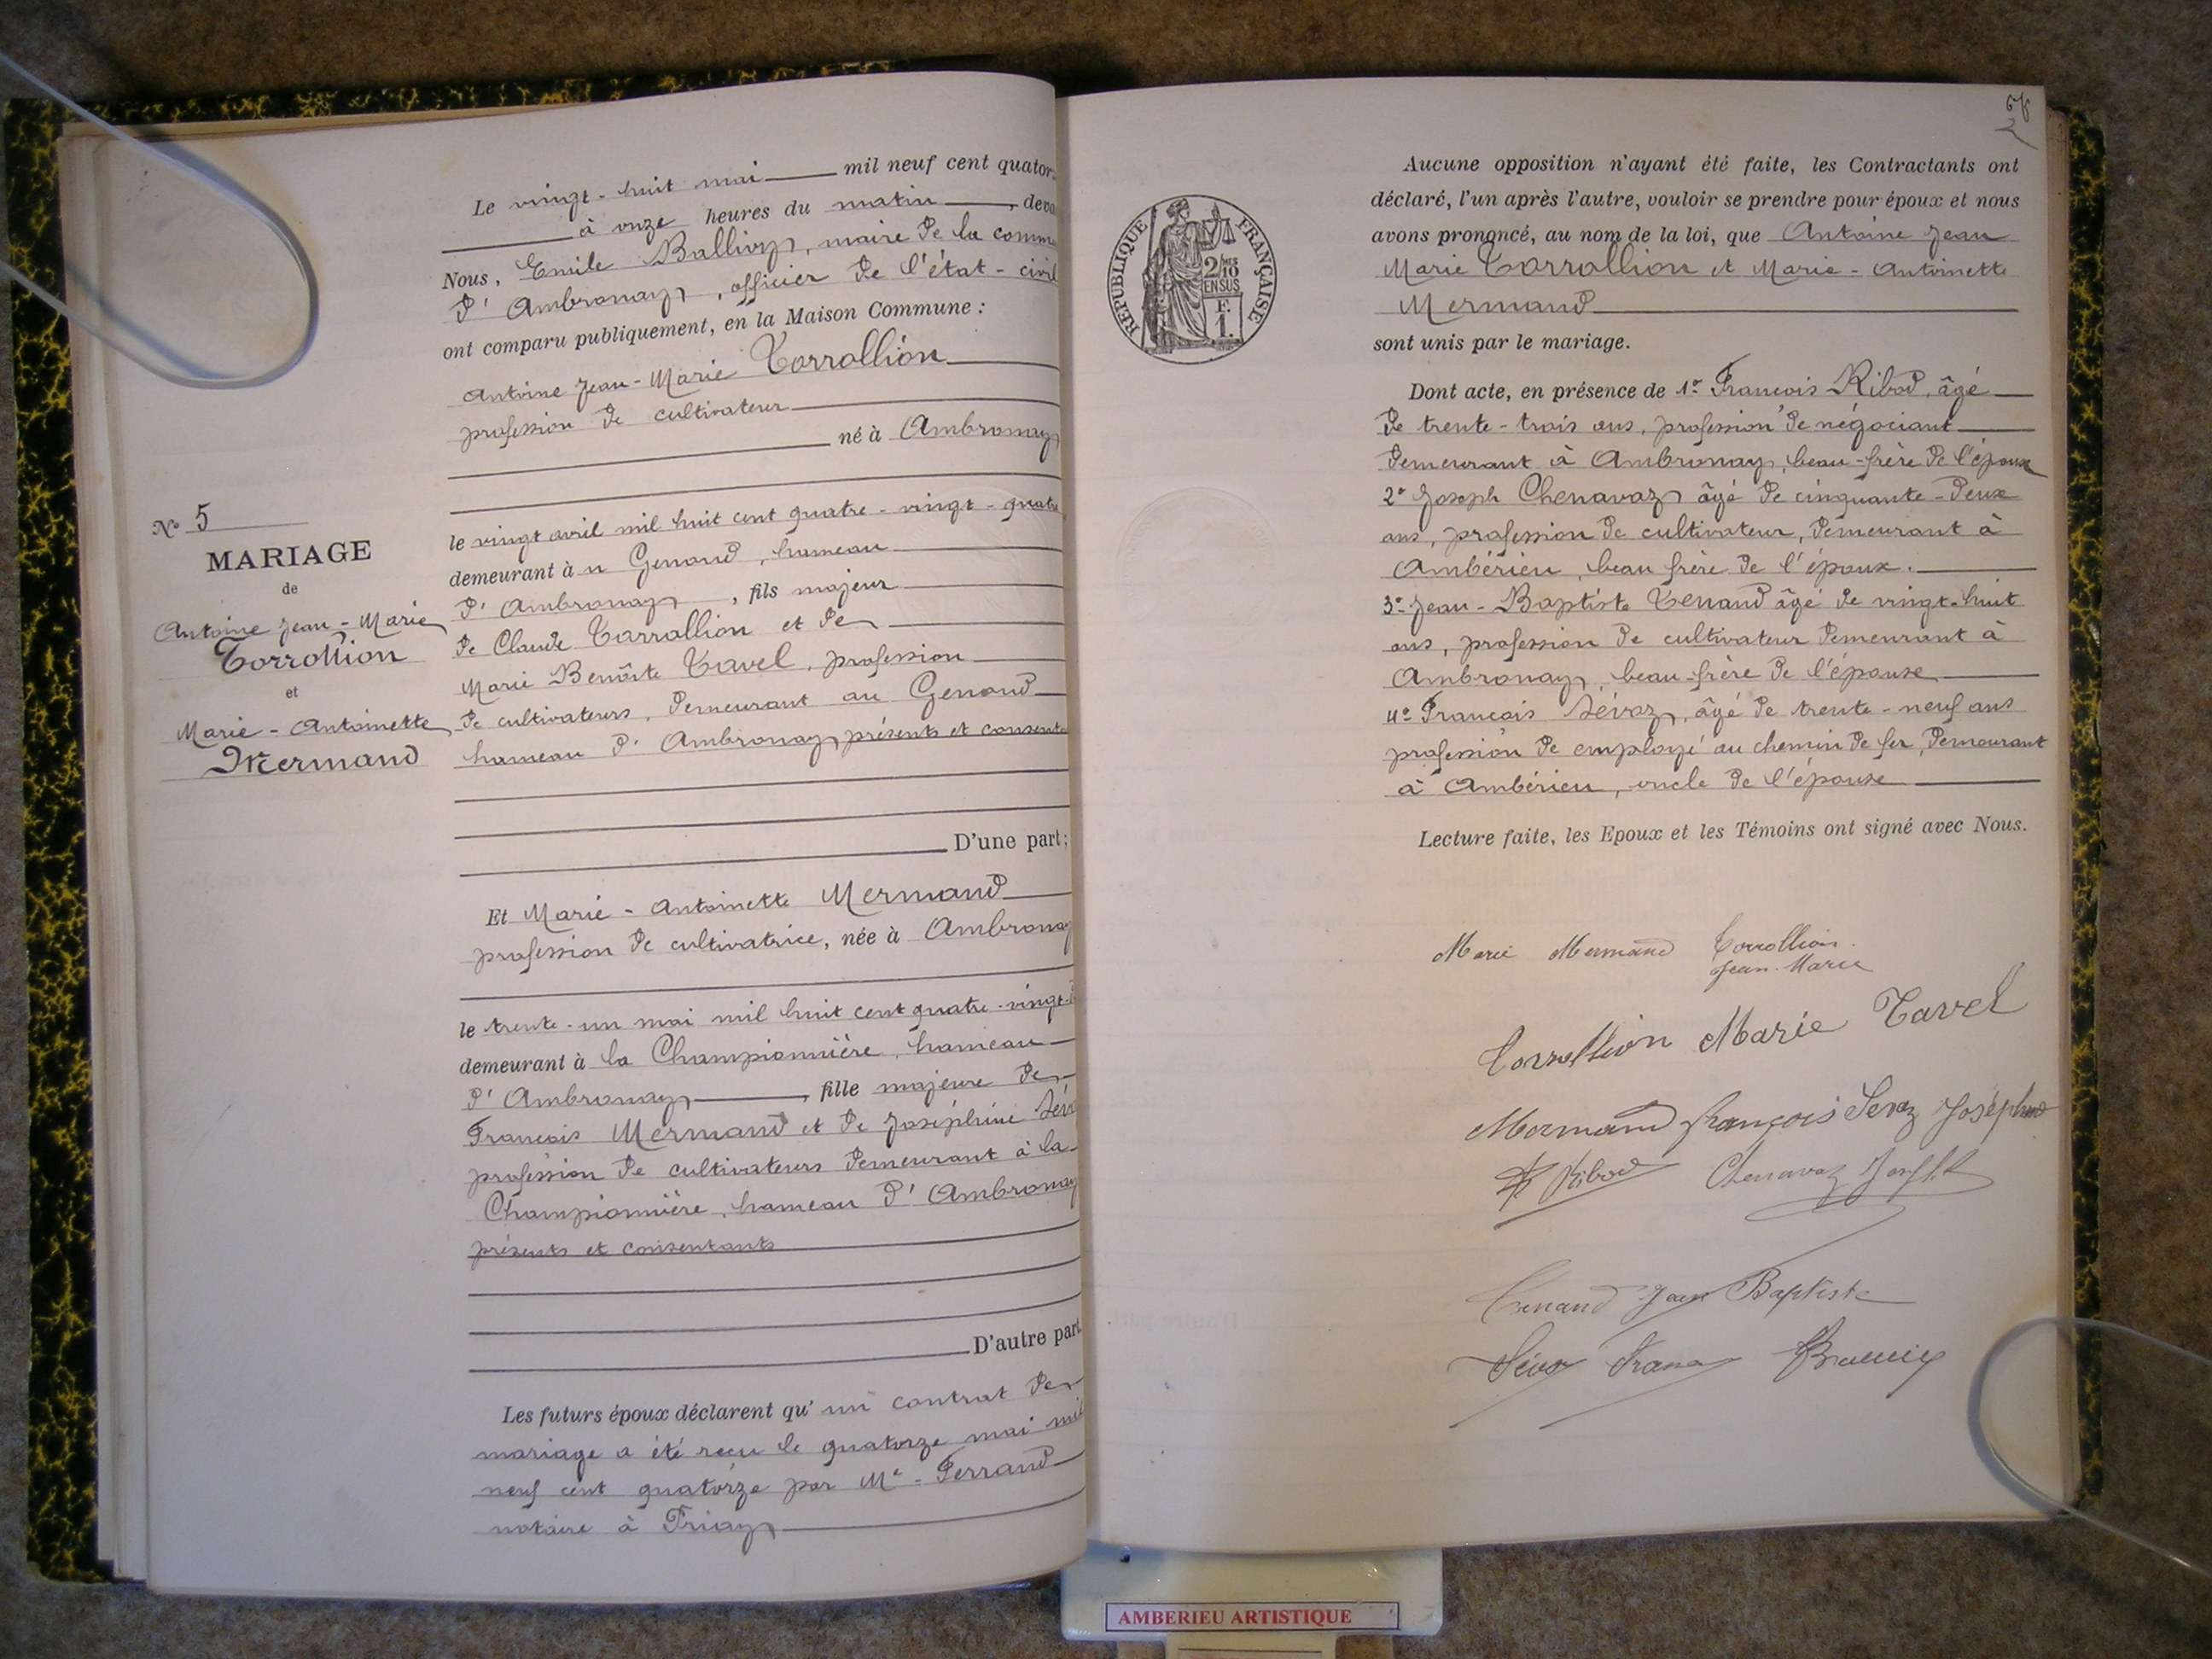 Le vingt-huit mai mil neuf cent quator
à onze heures du matin, deva
Nous, Emile Ballivy, maire de la comm
d'Ambronay, officier de l'état-civil
ont comparu publiquement, en la Maison Commune :
Antoine Jean-Marie Torrollion
profession de cultivateur
né à Ambronay
le vingt avril mil huit cent quatre-vingt-quatre
demeurant à u Genoud, hameau
d'Ambronay, fils majeur
de Claude Torrollion et de
Marie Benoîte Tavel, profession
de cultivateurs, demeurant au Genoud
hameau d'Ambronay présents et consenta
D'une part;
Et Marie-Antoinette Mermand
profession de cultivatrice, née à Ambronay
le trente-un mai mil huit cent quatre-vingt-
demeurant à la Championnière, hameau
d'Ambronay, fille majeure de
François Mermand et de Joséphine Sév
profession de cultivateurs demeurant à la
Championnière, hameau d'Ambronay
présents et consentants
D'autre part
Les futurs époux déclarent qu'un contrat de
mariage a été reçu le quatorze mai mil
neuf cent quatorze par Me Ferrand
notaire à Priay
No 5
MARIAGE
de
Antoine Jean-Marie
Torrollion
et
Marie-Antoinette
Mermand
2
RÉPUBLIQUE FRANÇAISE
2/10
EN SUS
F.
1.
Aucune opposition n'ayant été faite, les Contractants ont
déclaré, l'un après l'autre, vouloir se prendre pour époux et nous
avons prononcé, au nom de la loi, que Antoine Jean
Marie Torrollion et Marie-Antoinette
Mermand
sont unis par le mariage.
Dont acte, en présence de 1º François Ribod, âgé
de trente-trois ans, profession de négociant
demeurant à Ambronay, beau-frère de l'époux
2º Joseph Chenavaz âgé de cinquante-deux
ans, profession de cultivateur, demeurant à
Ambérieu, beau frère de l'époux.
3º Jean-Baptiste Tenand âgé de vingt-huit
ans, profession de cultivateur demeurant à
Ambronay, beau-frère de l'épouse
4º François Sévoz, âgé de trente-neuf ans
profession de employé au chemin de fer, demeurant
à Ambérieu, oncle de l'épouse
Lecture faite, les Epoux et les Témoins ont signé avec Nous.
Marie Mermand Torrollion
Jean-Marie
Torrollion Marie Tavel
Mermand François Sevoz Joséphine
F Ribod Chenavaz Joseph
Tenand Jean Baptiste
Sévoz Franc
AMBERIEU ARTISTIQUE